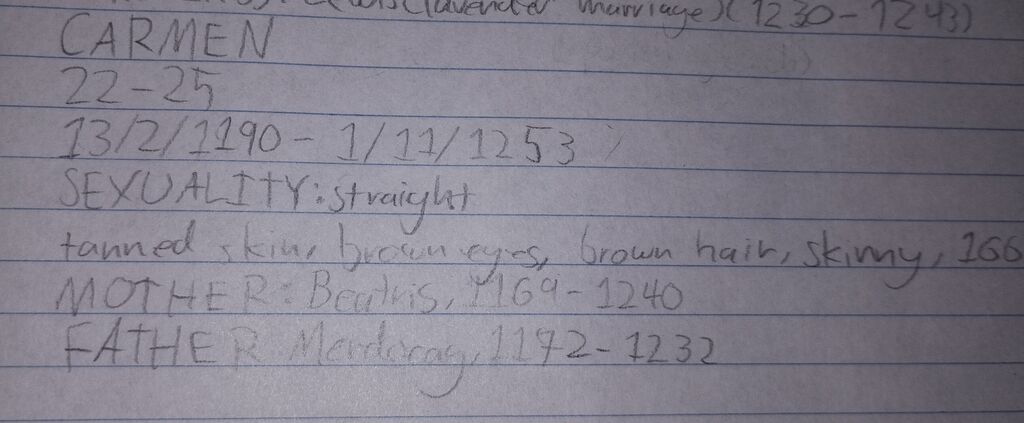 (lavender marriage)(1230-1243)
CARMEN
22-25
13/2/1190 - 1/11/1253
SEXUALITY: straight
tanned skin, brown eyes, brown hair, skinny, 166
MOTHER: Beatris, 1169-1240
FATHER: Mordocay, 1172-1232